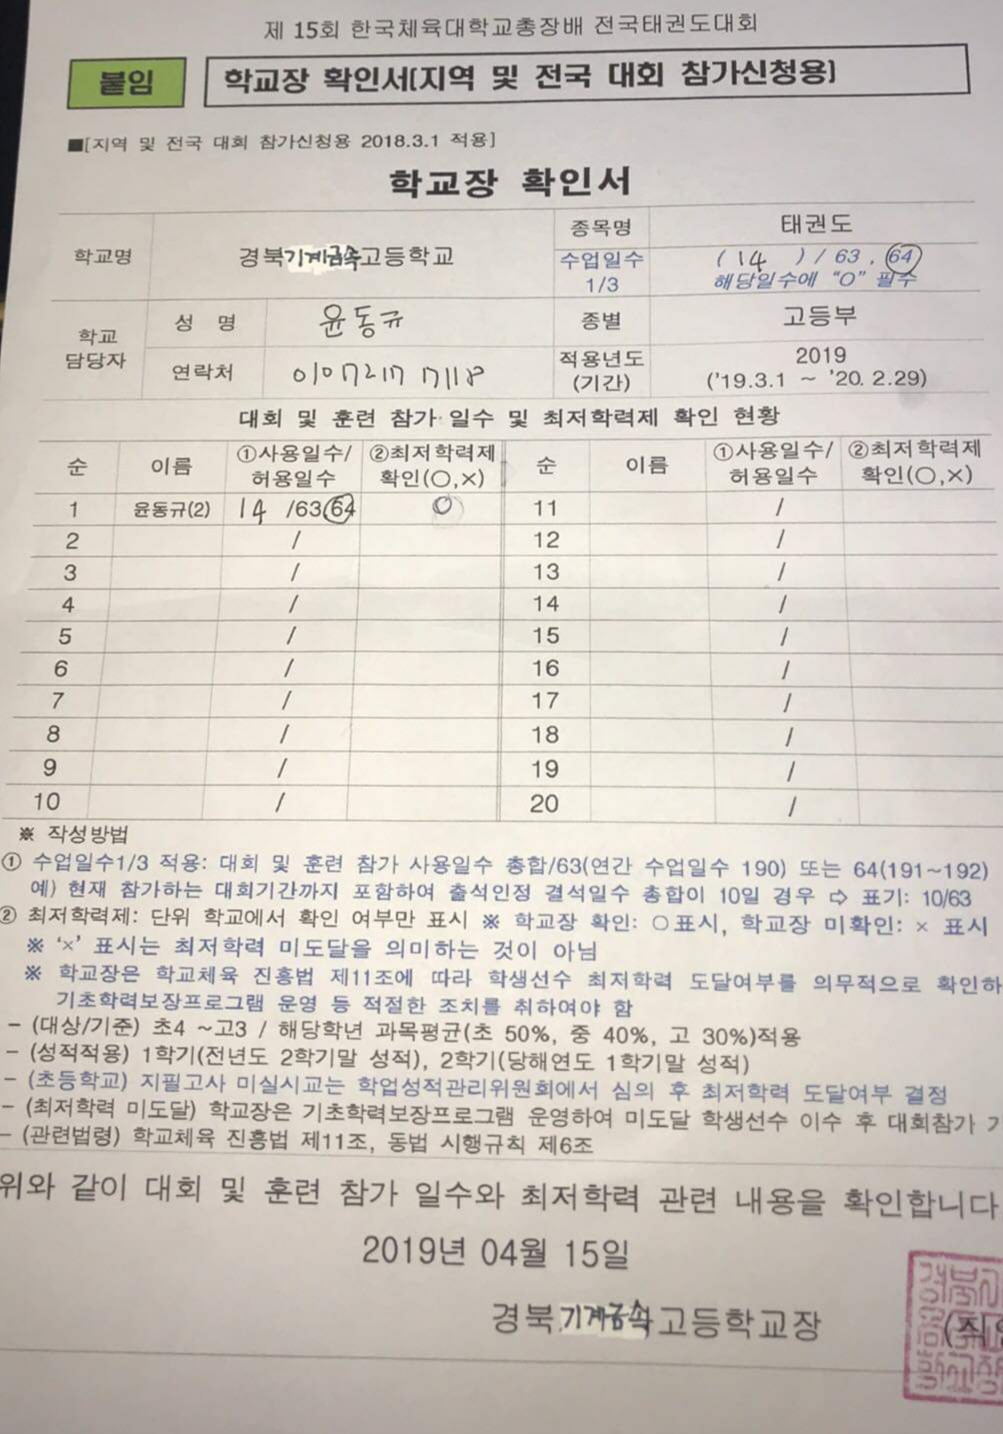 제 15회 한국체육대학교총장배 전국태권도대회
붙임 학교장 확인서[지역 및 전국 대회 참가신청용]
■[지역 및 전국 대회 참가신청용 2018.3.1 적용]
학교장 확인서
학교명 경북기계금속고등학교 종목명 태권도
수업일수 1/3 ( 14 ) / 63 , 64
해당일수에 “O” 필수
학교 담당자 성 명 윤동규 종별 고등부
연락처 적용년도 (기간) 2019
('19.3.1 ~ '20. 2.29)
대회 및 훈련 참가 일수 및 최저학력제 확인 현황
순 이름 ①사용일수/ 허용일수 ②최저학력제 확인(○,×) 순 이름 ①사용일수/ 허용일수 ②최저학력제 확인(○,×)
1 윤동규(2) 14 /63 64 O 11 /
2 / 12 /
3 / 13 /
4 / 14 /
5 / 15 /
6 / 16 /
7 / 17 /
8 / 18 /
9 / 19 /
10 / 20 /
※ 작성방법
① 수업일수1/3 적용: 대회 및 훈련 참가 사용일수 총합/63(연간 수업일수 190) 또는 64(191~192)
예) 현재 참가하는 대회기간까지 포함하여 출석인정 결석일수 총합이 10일 경우 ⇨ 표기: 10/63
② 최저학력제: 단위 학교에서 확인 여부만 표시 ※ 학교장 확인: ○표시, 학교장 미확인: × 표시
※ '×' 표시는 최저학력 미도달을 의미하는 것이 아님
※ 학교장은 학교체육 진흥법 제11조에 따라 학생선수 최저학력 도달여부를 의무적으로 확인하
기초학력보장프로그램 운영 등 적절한 조치를 취하여야 함
- (대상/기준) 초4 ~고3 / 해당학년 과목평균(초 50%, 중 40%, 고 30%)적용
- (성적적용) 1학기(전년도 2학기말 성적), 2학기(당해연도 1학기말 성적)
- (초등학교) 지필고사 미실시교는 학업성적관리위원회에서 심의 후 최저학력 도달여부 결정
- (최저학력 미도달) 학교장은 기초학력보장프로그램 운영하여 미도달 학생선수 이수 후 대회참가
- (관련법령) 학교체육 진흥법 제11조, 동법 시행규칙 제6조
위와 같이 대회 및 훈련 참가 일수와 최저학력 관련 내용을 확인합니다
2019년 04월 15일
경북기계금속고등학교장